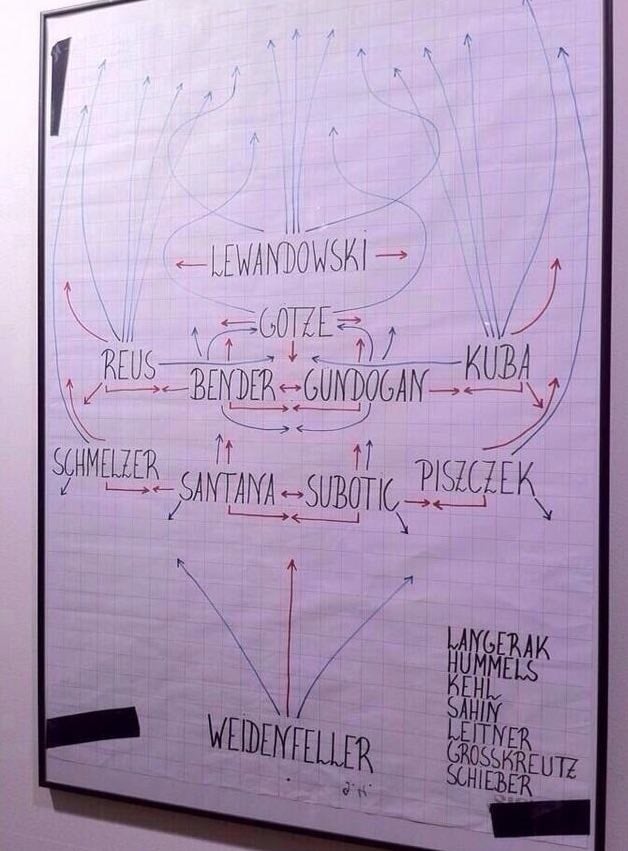 LEWANDOWSKI
GÖTZE
REUS
KUBA
BENDER
GÜNDOGAN
SCHMELZER
PISZCZEK
SANTANA
SUBOTIC
WEIDENFELLER
LANGERAK
HUMMELS
KEHL
SAHIN
LEITNER
GROSSKREUTZ
SCHIEBER